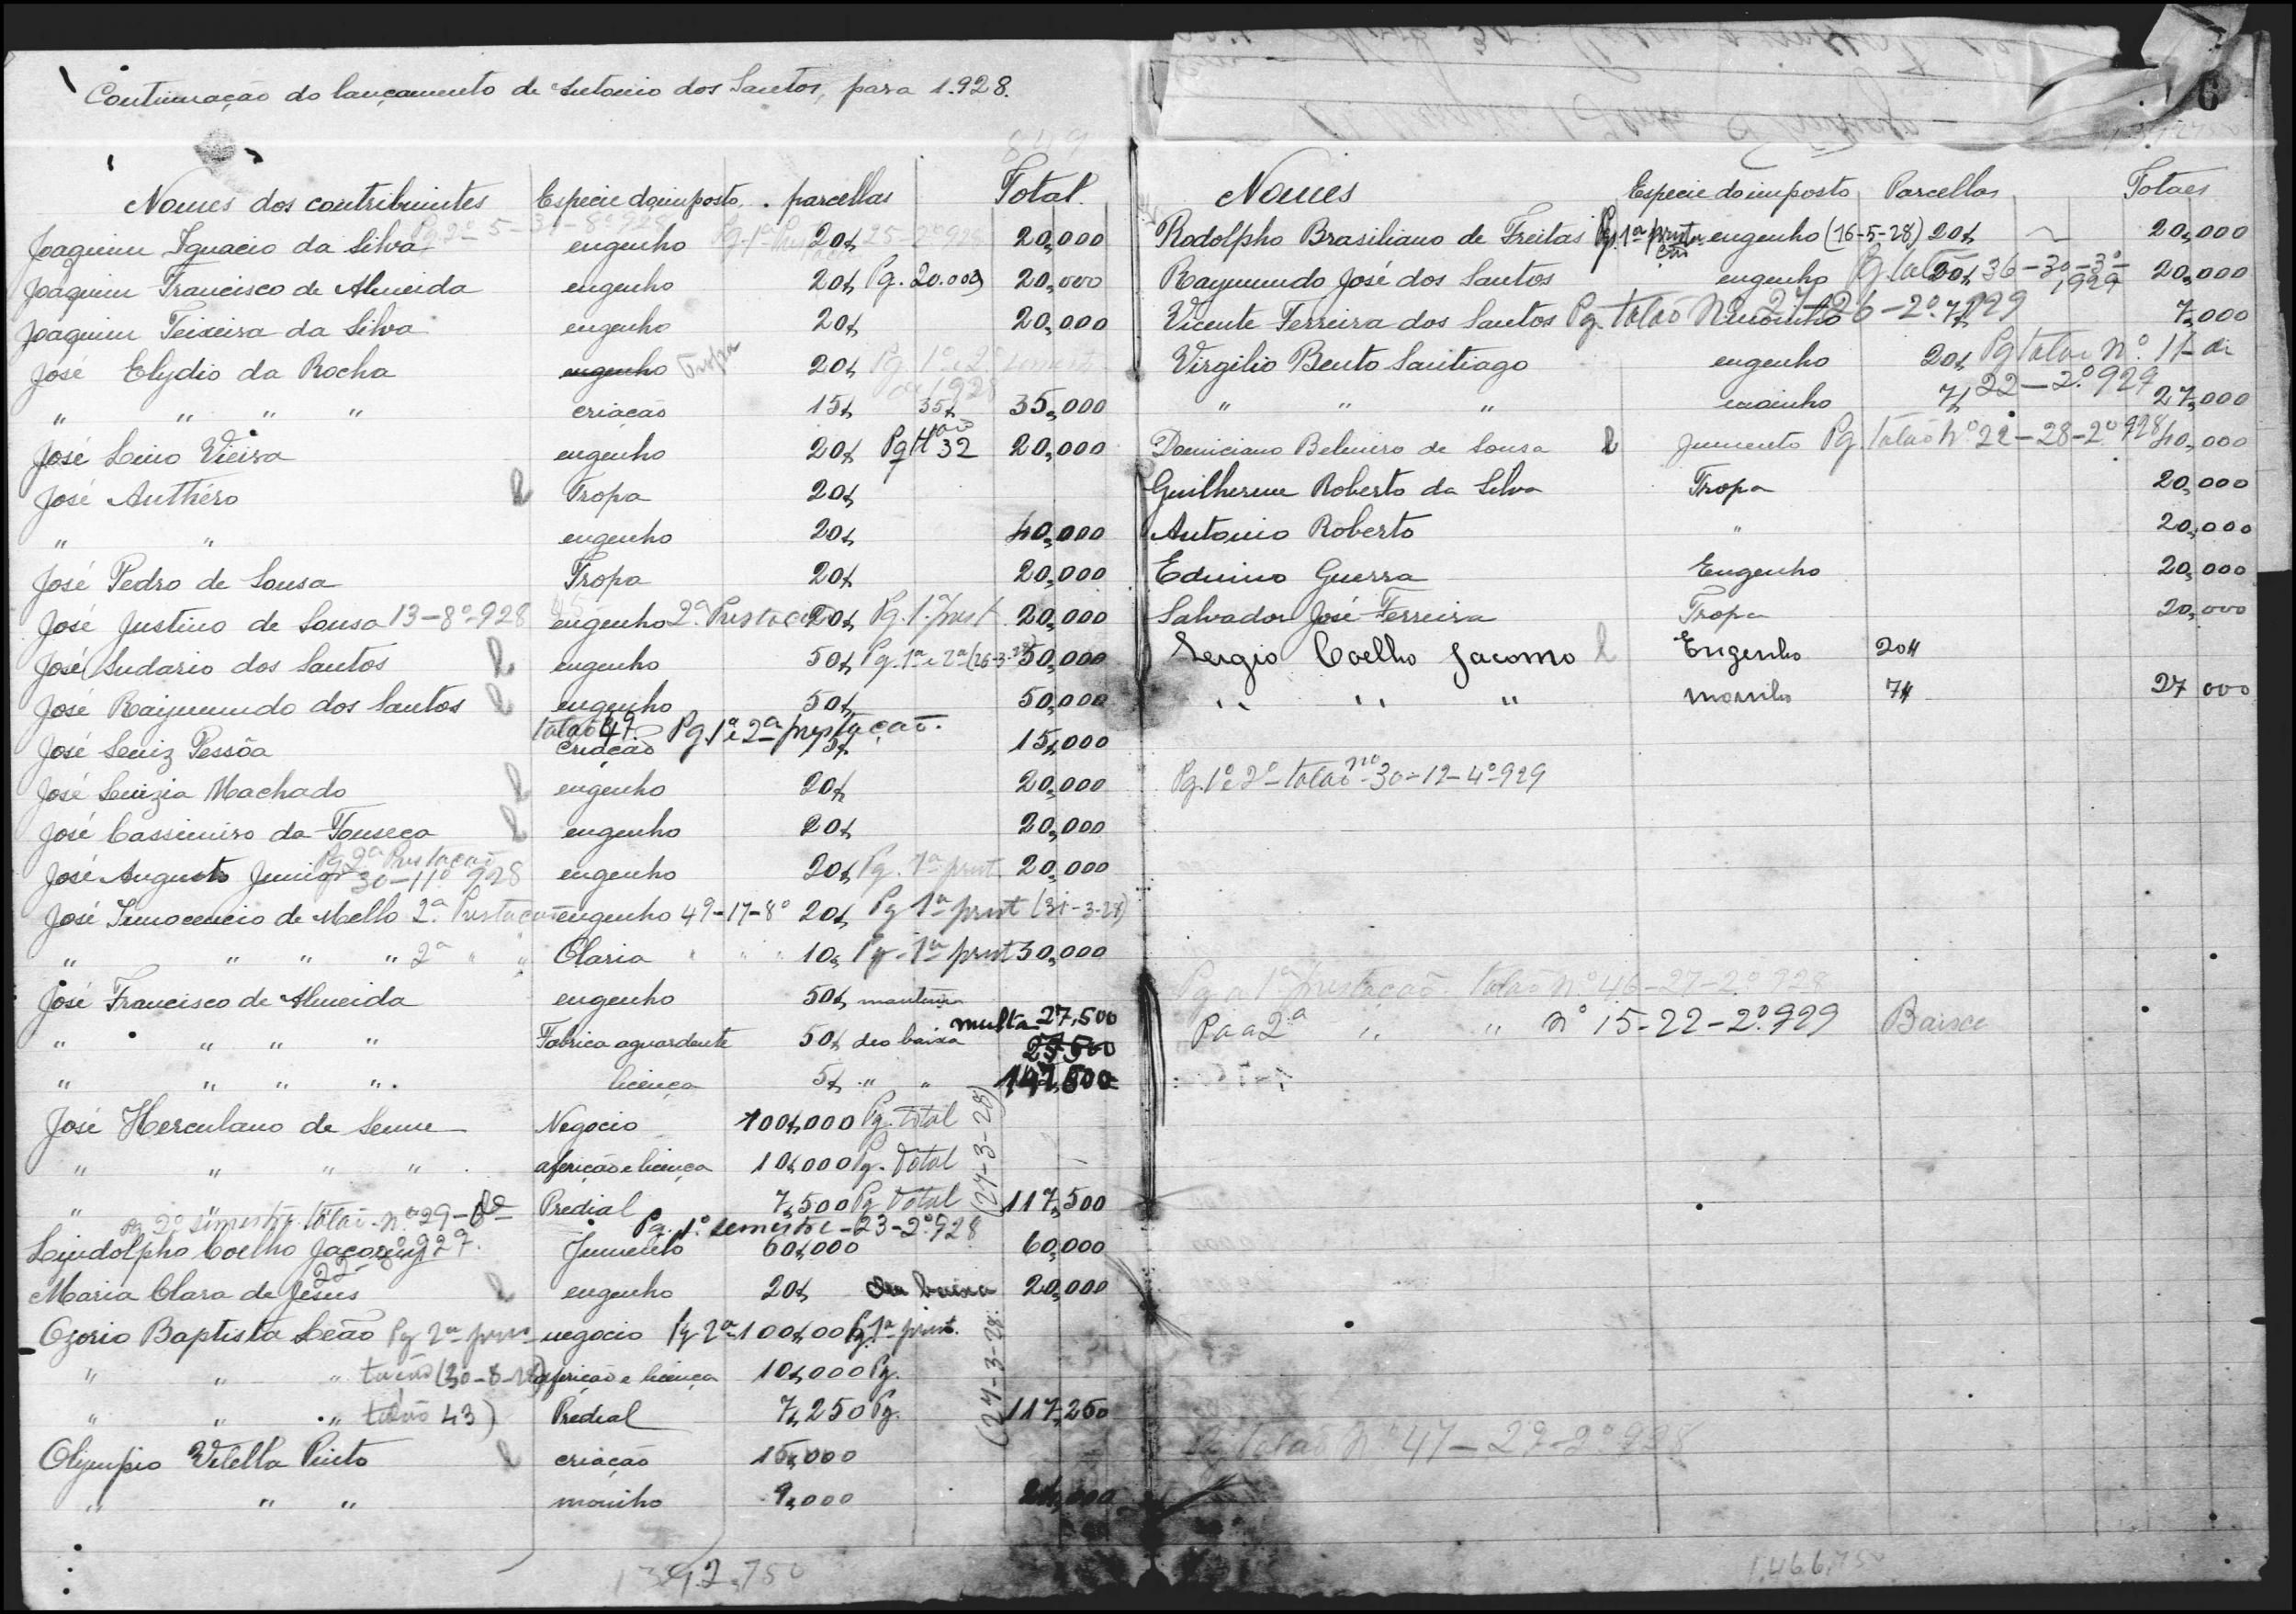 Continuação do lançamento de Antonio dos Santos, para 1.928.
Nomes dos contribuintes Especie do imposto parcellas Total
Joaquim Ignacio da Silva engenho 20$ 20,000
Joaquim Francisco de Almeida engenho 20$ Pg. 20.000 20,000
Joaquim Teixeira da Silva engenho 20$ 20,000
José Elydio da Rocha engenho Tropa 20$ Pg. 1º e 2º
" " " " criação 15$ 35$ 35,000
José Lino Vieira engenho 20$ 32 20,000
José Anthéro Tropa 20$
" " engenho 20$ 40,000
José Pedro de Sousa Tropa 20$ 20,000
José Justino de Sousa 13-8º-928 engenho 2ª Prestação 20$ Pg. 1ª prest 20,000
José Sudario dos Santos engenho 50$ Pg. 1ª e 2ª (26-3-28) 50,000
José Raymundo dos Santos engenho 50$ 50,000
talão 49 Pg. 1ª e 2ª prestação.
José Luiz Pessôa criação 15$ 15,000
José Luizia Machado engenho 20$ 20,000
José Cassimiro da Fonseca engenho 20$ 20,000
Pg 2ª Prestação
José Augusto Junior 30-11º 928 engenho 20$ Pg. 1ª prest. 20,000
José Innocencio de Mello 2ª Prestação engenho 49-17-8º 20$ Pg 1ª prest (31-3-28)
" " " " 2ª " " Olaria " " " 10$ Pg - 1ª prest 30,000
José Francisco de Almeida engenho 50$
multa 27,500
" " " " Fabrica aguardente 50$ deo baixa
" " " " licença 5$ " "
José Herculano de Senne Negocio 100$000 Pg. total
" " " " aferição e licença 10$000 Pg. total (24-3-28)
" Predial 7,500 Pg total 117,500
Pg. 2º semestre talão nº 29-
Pg. 1º semestre - 23-2º-928
Lindolpho Coelho Jumento 60$000 60,000
Maria Clara de Jesus engenho 20$ deu baixa 20,000
Ozorio Baptista Leão Pg 2ª negocio Pg 2ª 100$000 Pg. 1ª prest.
" " " (30-8-28) aferição e licença 10$000 Pg. (24-3-28)
" " " talão 43) Predial 7$250 Pg. 117,250
Olympio Vilella Pinto criação 15,000
" " " moinho 9,000 24,000
1392,750
6
Nomes Especie do imposto Parcellas Totaes
Rodolpho Brasiliano de Freitas Pg. 1ª prestação engenho (16-5-28) 20$ 20,000
Raymundo José dos Santos engenho Pg. talão 20$ 36-30-3º 1929 20,000
Vicente Ferreira dos Santos Pg. talão Nº moinho 26-2º 7$ 929 7,000
Virgilio Bento Santiago engenho 20$ Pg talão nº. 11 de
" " " moinho 7$ 22-2º 929 27,000
Domiciano Belmiro de Sousa Jumento Pg. talão Nº 22-28-2º 928 40,000
Guilherme Roberto da Silva Tropa 20,000
Antonio Roberto " 20,000
Edmino Guerra Engenho 20,000
Salvador José Ferreira Tropa 20,000
Sergio Coelho Jacomo Engenho 20$
" " " moinho 7$ 27 000
Pg. 1º e 2º talão nro 30-12-4º-929
Pg a 1ª prestação. talão nº 46-27-2º 928
Pg a 2ª " " nº 15-22-2º.929 Baixa
Pg. talão Nº 47-29-2º 928
1.466,750